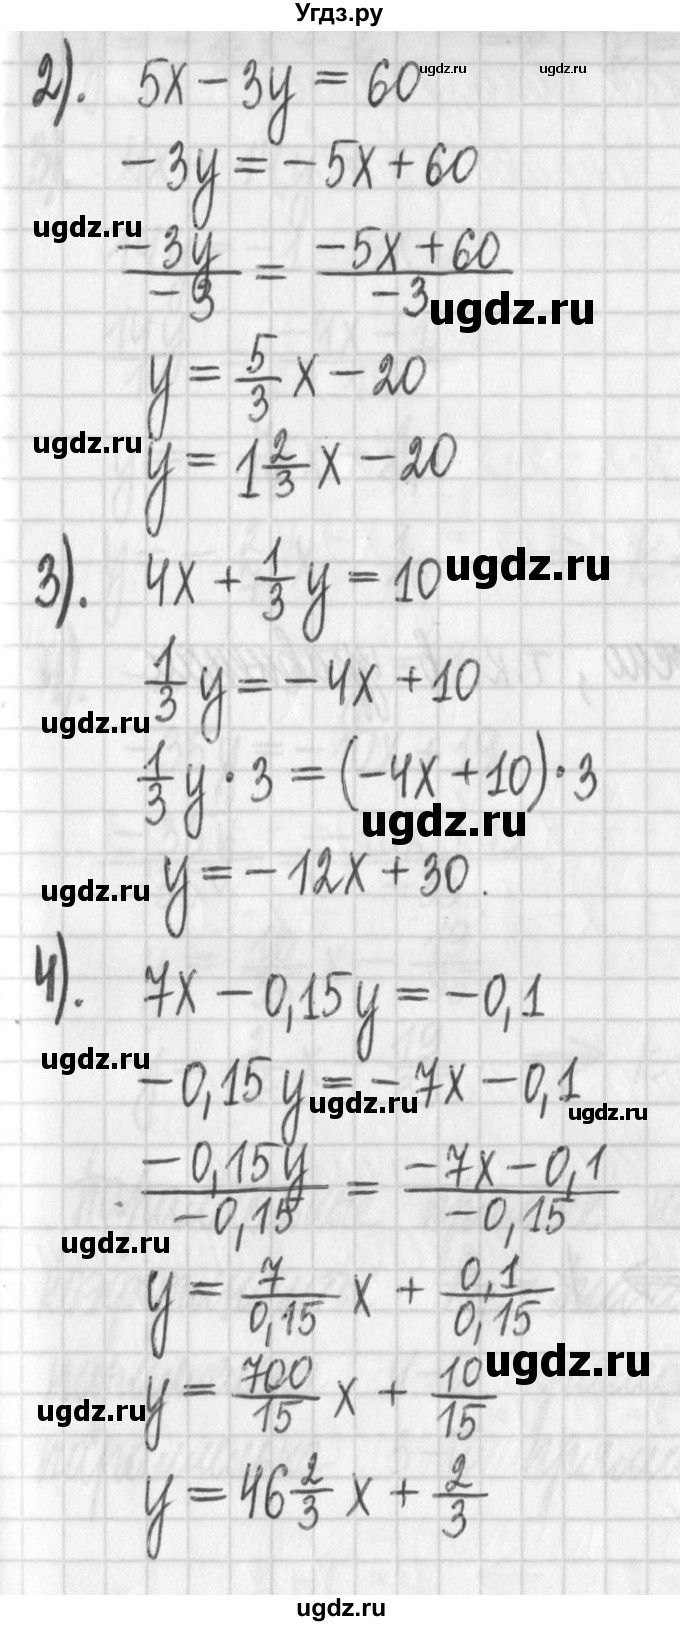 Угдз.ру
2). 5x - 3y = 60 ugdz.ru ugdz.ru
-3y = -5x + 60
ugdz.ru
-3y/-3 = -5x + 60/-3
ugdz.ru
y = 5/3 x - 20
ugdz.ru
y = 1 2/3 x - 20
3). 4x + 1/3 y = 10 ugdz.ru
1/3 y = -4x + 10
ugdz.ru
1/3 y · 3 = (-4x + 10) · 3
ugdz.ru
ugdz.ru
y = -12x + 30.
4). 7x - 0,15y = -0,1
ugdz.ru
-0,15y = -7x - 0,1
ugdz.ru ugdz.ru
-0,15y/-0,15 = -7x - 0,1/-0,15
ugdz.ru
y = 7/0,15 x + 0,1/0,15
ugdz.ru
y = 700/15 x + 10/15
ugdz.ru
y = 46 2/3 x + 2/3
ugdz.ru